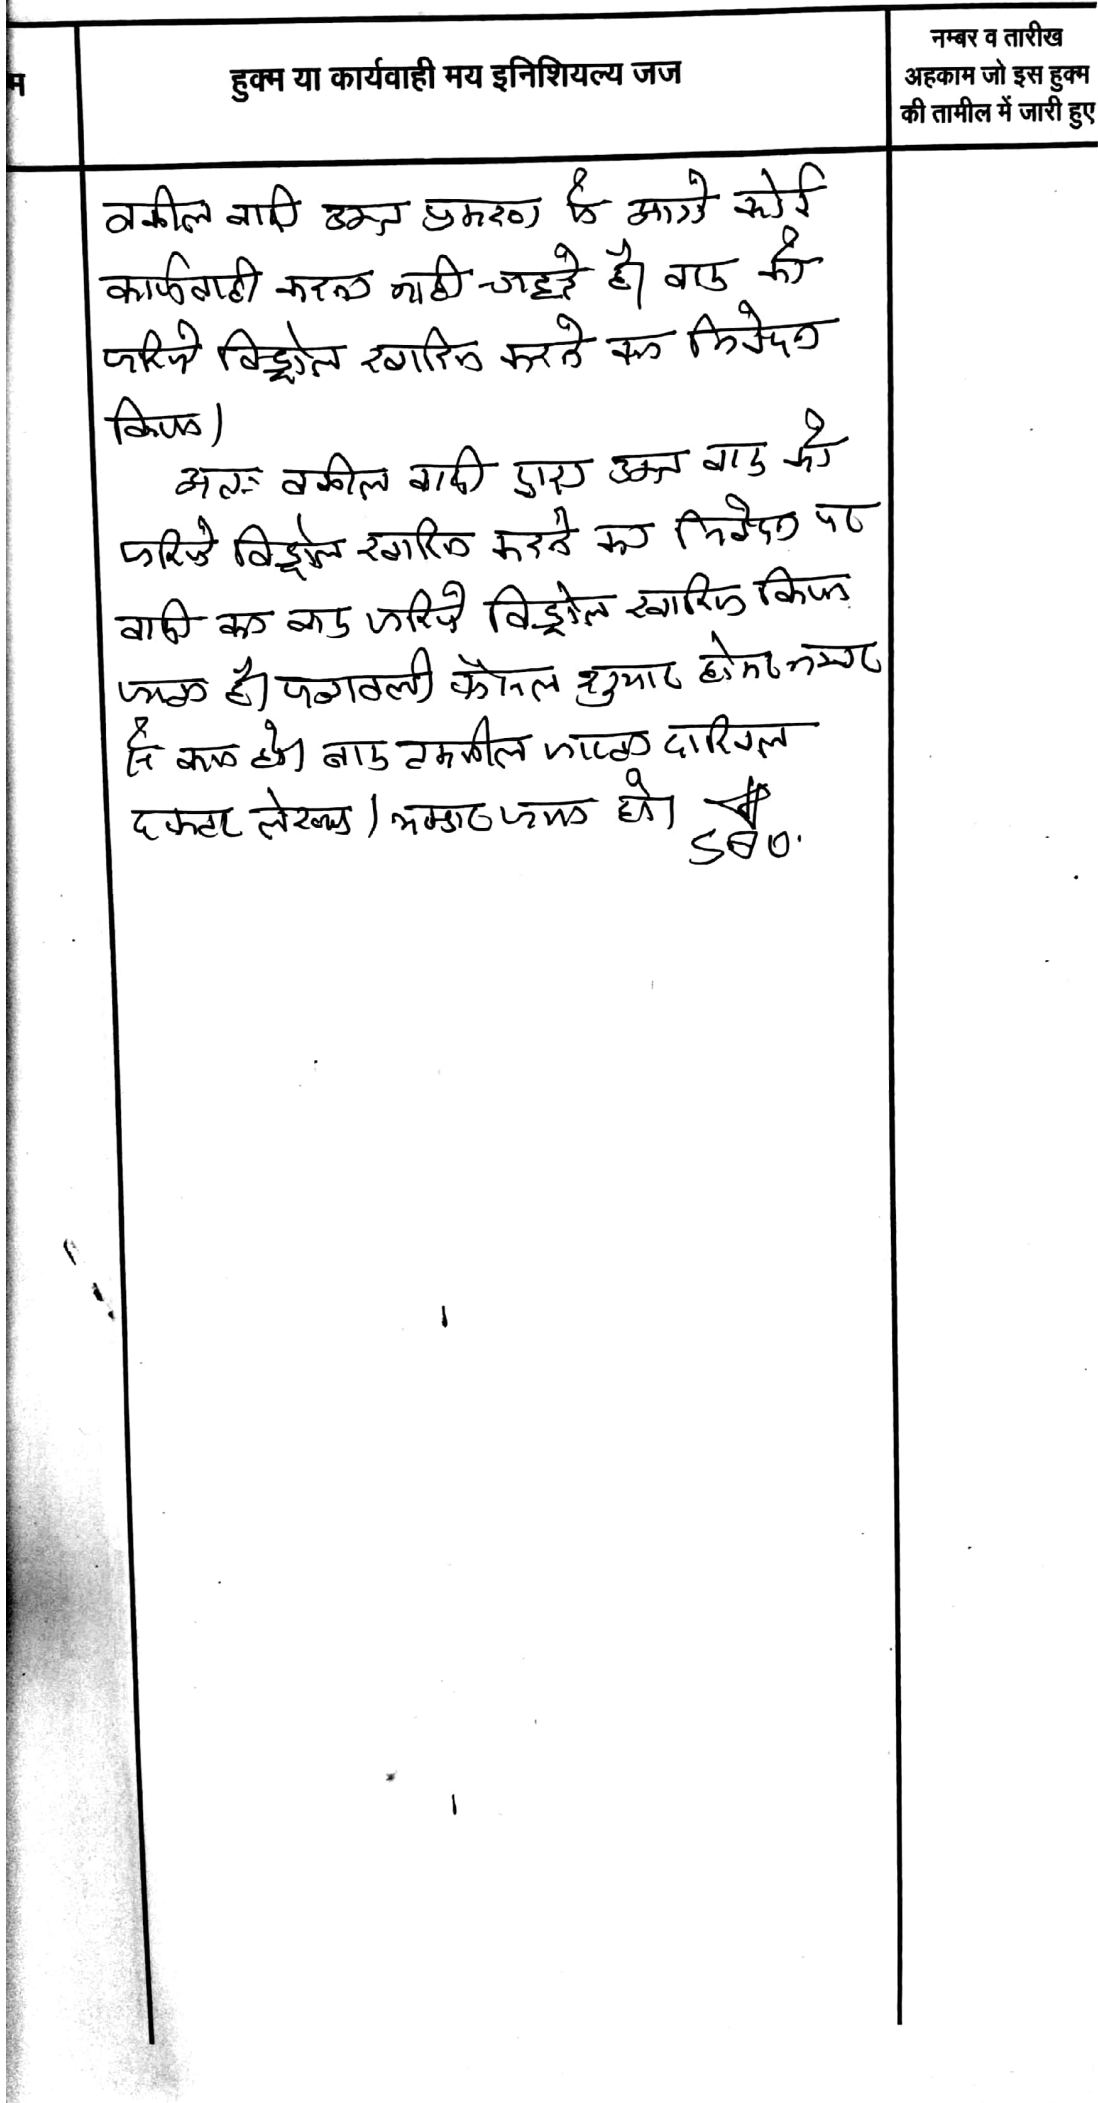 म
हुक्म या कार्यवाही मय इनिशियल्य जज
नम्बर व तारीख
अहकाम जो इस हुक्म
की तामील में जारी हुए
वकील वादी उक्त प्रकरण में आगे कोई
कार्यवाही करना नही चाहते है। वाद को
जरिये विड्रोल खारिज करने का निवेदन
किया।
अतः वकील वादी द्वारा उक्त वाद को
जरिये विड्रोल खारिज करने का निवेदन पर
वादी का वाद जरिये विड्रोल खारिज किया
जाता है। पत्रावली फैसल शुमार होकर नम्बर
से कम हो। बाद तकमील जाब्ता दाखिल
दफ्तर लेखागार। नम्बर कम हो।
SDO.